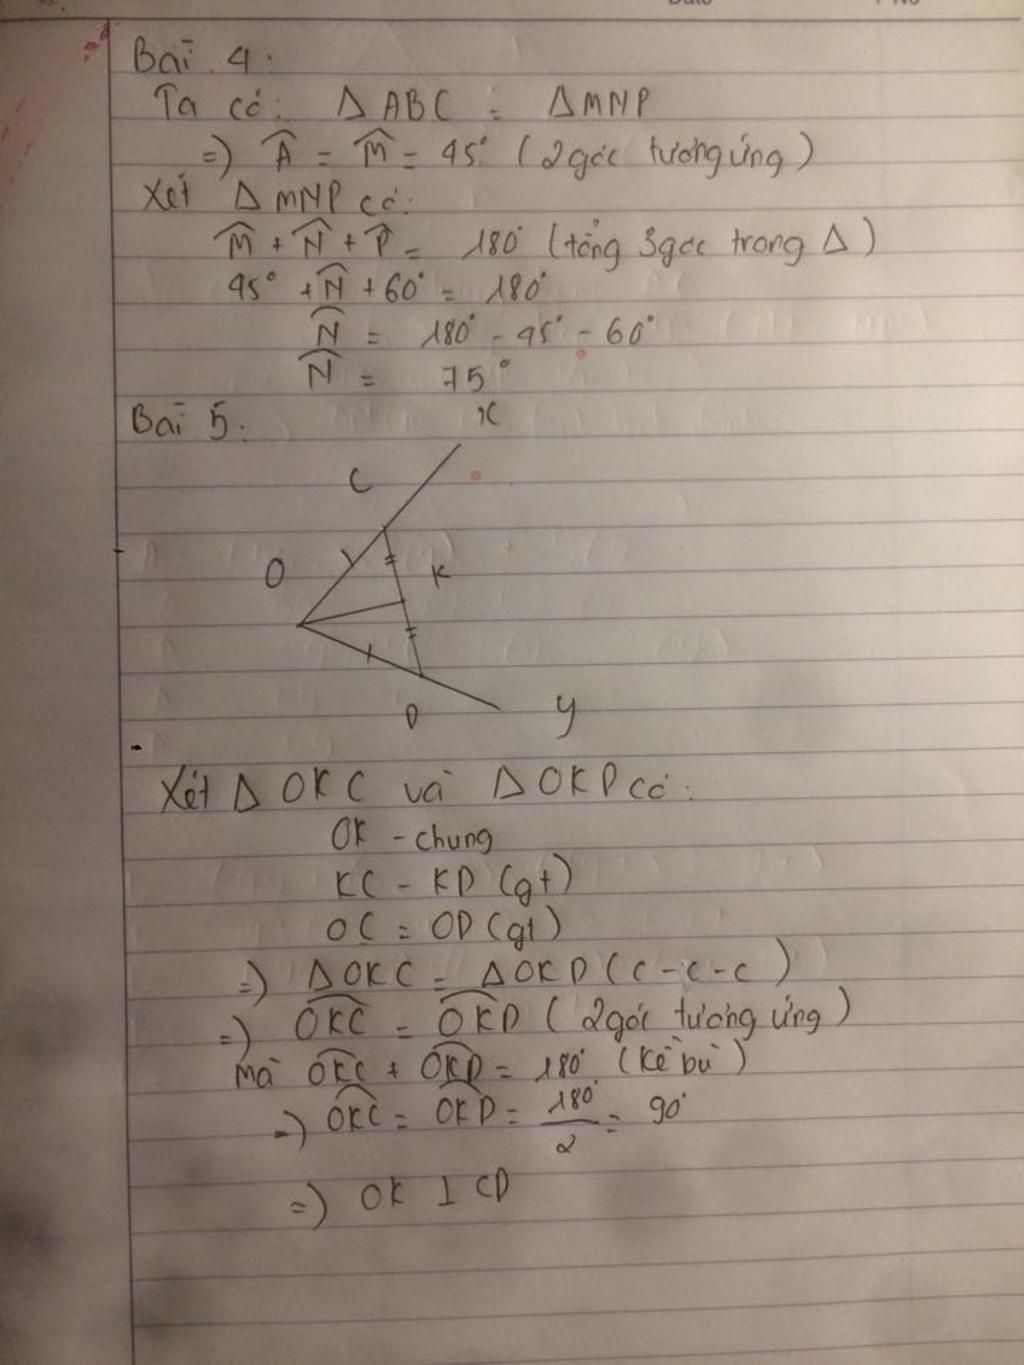 Bài 4:
Ta có: Δ ABC = Δ MNP
=) Â = M̂ = 45° (2 góc tương ứng)
Xét Δ MNP có:
M̂ + N̂ + P̂ = 180° (tổng 3 góc trong Δ)
45° + N̂ + 60° = 180°
N̂ = 180° - 45° - 60°
N̂ = 75°
Bài 5:
x
C
O
K
D
y
Xét Δ OKC và Δ OKD có:
OK - chung
KC - KD (gt)
OC = OD (gt)
=) Δ OKC = Δ OKD (c-c-c)
=) OKC = OKD (2 góc tương ứng)
Mà OKC + OKD = 180° (kề bù)
=) OKC = OKD = 180°/2 = 90°
=) OK ⊥ CD